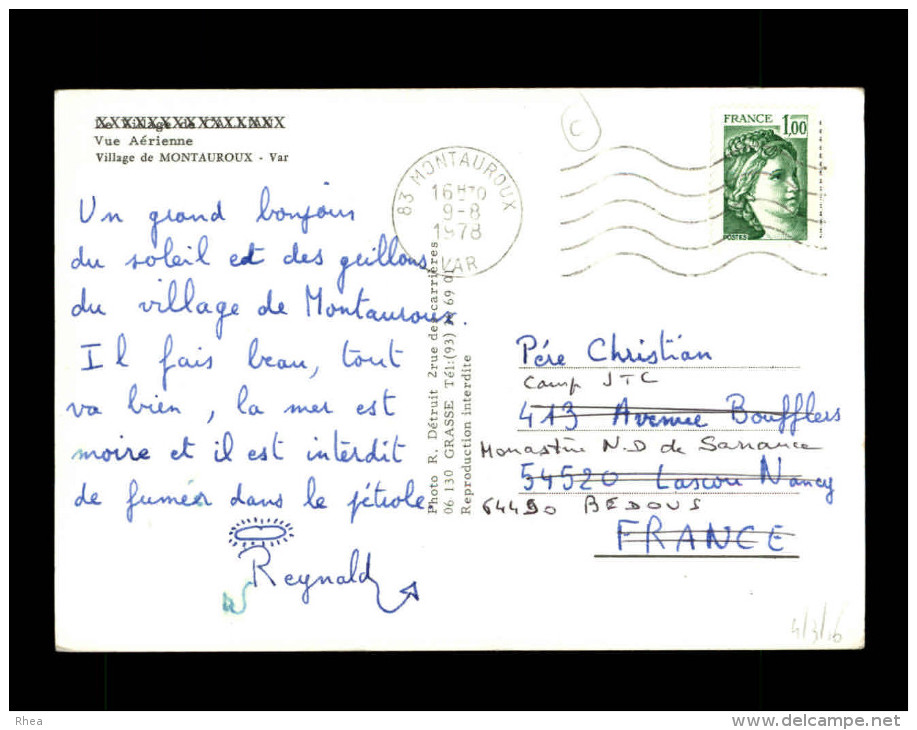 Le Village de CALLIAN
Vue Aérienne
Village de MONTAUROUX - Var
Un grand bonjour
du soleil et des geillons
du village de Montauroux.
Il fais beau, tout
va bien, la mer est
moire et il est interdit
de fumer dans le pétrole
Reynald
Photo R. Détruit 2 rue des carrières
06 130 GRASSE Tél:(93) 69 0
Reproduction interdite
83 MONTAUROUX
16H30
9-8
1978
VAR
C
FRANCE
1,00
POSTES
Père Christian
Camp JTC
413 Avenue Boufflers
Monastère N.D de Sarrance
54520 Laxou Nancy
64490 BEDOUS
FRANCE
4/3/16
Rhea
www.delcampe.net